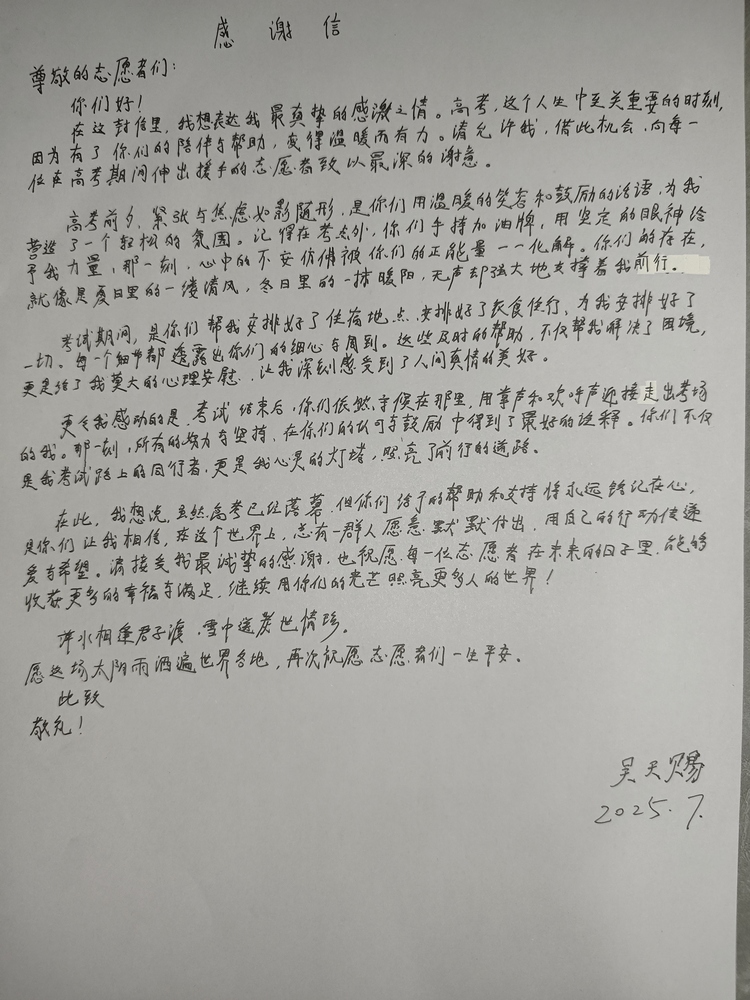 感谢信
尊敬的志愿者们：
你们好！
在这封信里，我想表达我最真挚的感激之情。高考，这个人生中至关重要的时刻，
因为有了你们的陪伴与帮助，变得温暖而有力。请允许我，借此机会，向每一
位在高考期间伸出援手的志愿者致以最深的谢意。
高考前夕，紧张与焦虑如影随形，是你们用温暖的笑容和鼓励的话语，为我
营造了一个轻松的氛围。记得在考点外，你们手持加油牌，用坚定的眼神给
予我力量，那一刻，心中的不安仿佛被你们的正能量一一化解。你们的存在，
就像是夏日里的一缕清风，冬日里的一抹暖阳，无声却强大地支撑着我前行。
考试期间，是你们帮我安排好了住宿地点，安排好了饮食住行，为我安排好了
一切。每一个细节都透露出你们的细心与周到。这些及时的帮助，不仅帮我解决了困境，
更是给了我莫大的心理安慰，让我深刻感受到了人间真情的美好。
更令我感动的是，考试结束后，你们依然守候在那里，用掌声和欢呼声迎接走出考场
的我。那一刻，所有的努力与坚持，在你们的认可与鼓励中得到了最好的诠释。你们不仅
是我考试路上的同行者，更是我心灵的灯塔，照亮了前行的道路。
在此，我想说，虽然高考已经落幕，但你们给予的帮助和支持将永远铭记在心，
是你们让我相信，在这个世界上，总有一群人愿意默默付出，用自己的行动传递
爱与希望。请接受我最诚挚的感谢，也祝愿每一位志愿者在未来的日子里，能够
收获更多的幸福与满足，继续用你们的光芒照亮更多人的世界！
萍水相逢君子渡，雪中送炭世情珍。
愿这场太阳雨洒遍世界各地，再次祝愿志愿者们一生平安。
此致
敬礼！
吴天赐
2025.7.